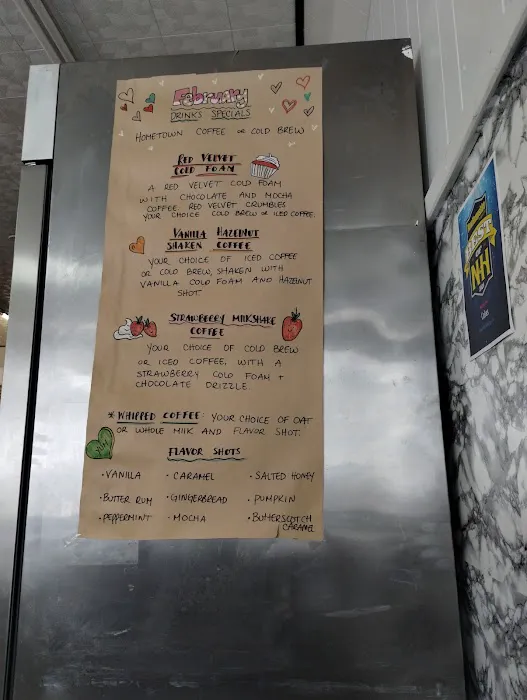 February
DRINKS SPECIALS
HOMETOWN COFFEE OR COLD BREW
RED VELVET
COLD FOAM
A RED VELVET COLD FOAM
WITH CHOCOLATE AND MOCHA
COFFEE. RED VELVET CRUMBLES
YOUR CHOICE COLD BREW OR ICED COFFEE.
VANILLA HAZELNUT
SHAKEN COFFEE
YOUR CHOICE OF ICED COFFEE
OR COLD BREW, SHAKEN WITH
VANILLA COLD FOAM AND HAZELNUT
SHOT.
STRAWBERRY MILKSHAKE
COFFEE
YOUR CHOICE OF COLD BREW
OR ICED COFFEE, WITH A
STRAWBERRY COLD FOAM +
CHOCOLATE DRIZZLE
* WHIPPED COFFEE: YOUR CHOICE OF OAT
OR WHOLE MILK AND FLAVOR SHOT.
FLAVOR SHOTS
• VANILLA • CARAMEL • SALTED HONEY
• BUTTER RUM • GINGERBREAD • PUMPKIN
• PEPPERMINT • MOCHA • BUTTERSCOTCH
CARAMEL
NH